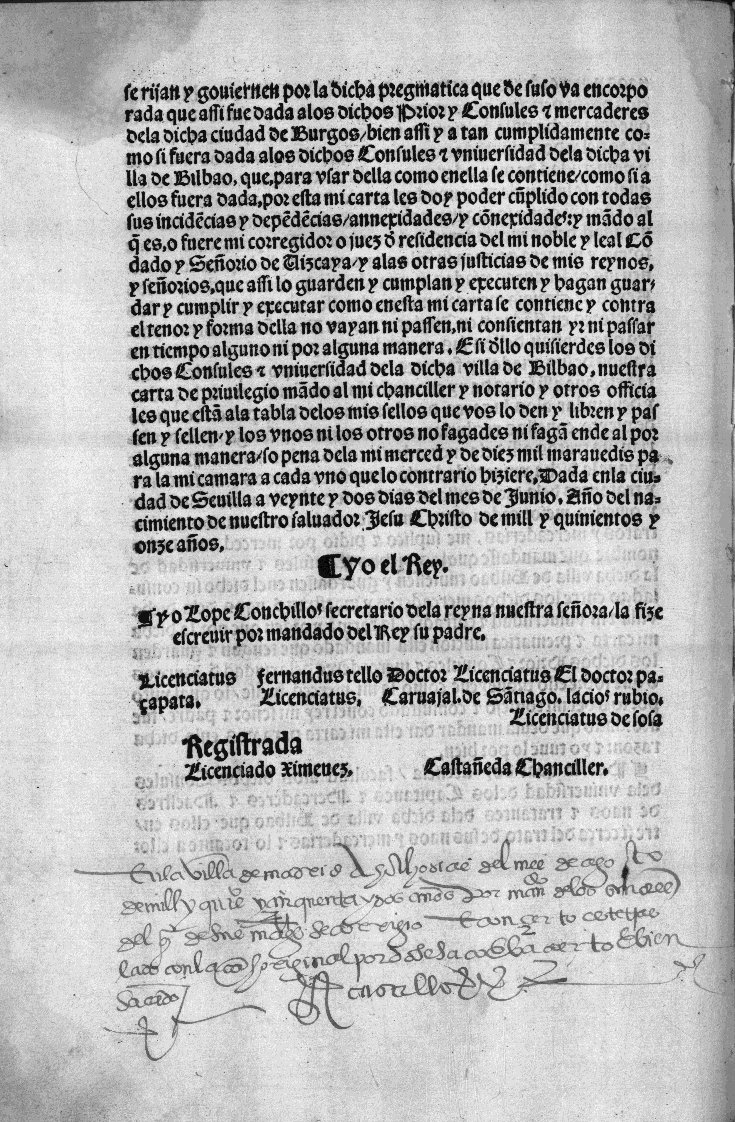 se rijan y gouiernen por la dicha pregmatica que de suso va encorpo
rada que assi fue dada alos dichos Prior y Consules ⁊ mercaderes
dela dicha ciudad de Burgos/bien assi y a tan cumplidamente co-
mo si fuera dada alos dichos Consules ⁊ vniuersidad dela dicha vi
lla de Bilbao, que,para vsar della como enella se contiene/como si a
ellos fuera dada,por esta mi carta les doy poder cũplido con todas
sus incidẽcias y depẽdẽcias/annexidades/y cõnexidades:y mãdo al
q̃ es,o fuere mi corregidor o juez d̃ residencia del mi noble y leal Cõ
dado y Señorio de Uizcaya/y alas otras justicias de mis reynos,
y señorios,que assi lo guarden y cumplan y executen y hagan guar/
dar y cumplir y executar como enesta mi carta se contiene y contra
el tenor y forma della no vayan ni passen,ni consientan yr ni passar
en tiempo alguno ni por alguna manera. E si d̃llo quisierdes los di
chos Consules ⁊ vniuersidad dela dicha villa de Bilbao, nuestra
carta de priuilegio mãdo al mi chanciller y notario y otros officia
les que estã ala tabla delos mis sellos que vos lo den y libren y pas
sen y sellen/y los vnos ni los otros no fagades ni fagã ende al por
alguna manera/so pena dela mi merced y de diez mil marauedis pa
ra la mi camara a cada vno que lo contrario hiziere, Dada enla ciu-
dad de Seuilla a veynte y dos dias del mes de Junio. Año del na-
cimiento de nuestro saluador Jesu Christo de mill y quinientos y
onze años,
¶Yo el Rey.
¶yo Lope Conchillos secretario dela reyna nuestra señora/la fize
escreuir por mandado del Rey su padre.
Licenciatus fernandus tello Doctor Licenciatus El doctor pa-
çapata. Licenciatus, Caruajal. de Sãtiago. lacios rubio,
Licenciatus de sosa
Registrada
Licenciado Ximenez, Castañeda Chanciller.
En la villa de madrid a dias del mes de agosto
de mill y quis y cinquenta y dos años Por mãdo delos señores
del de su
original por
sacado